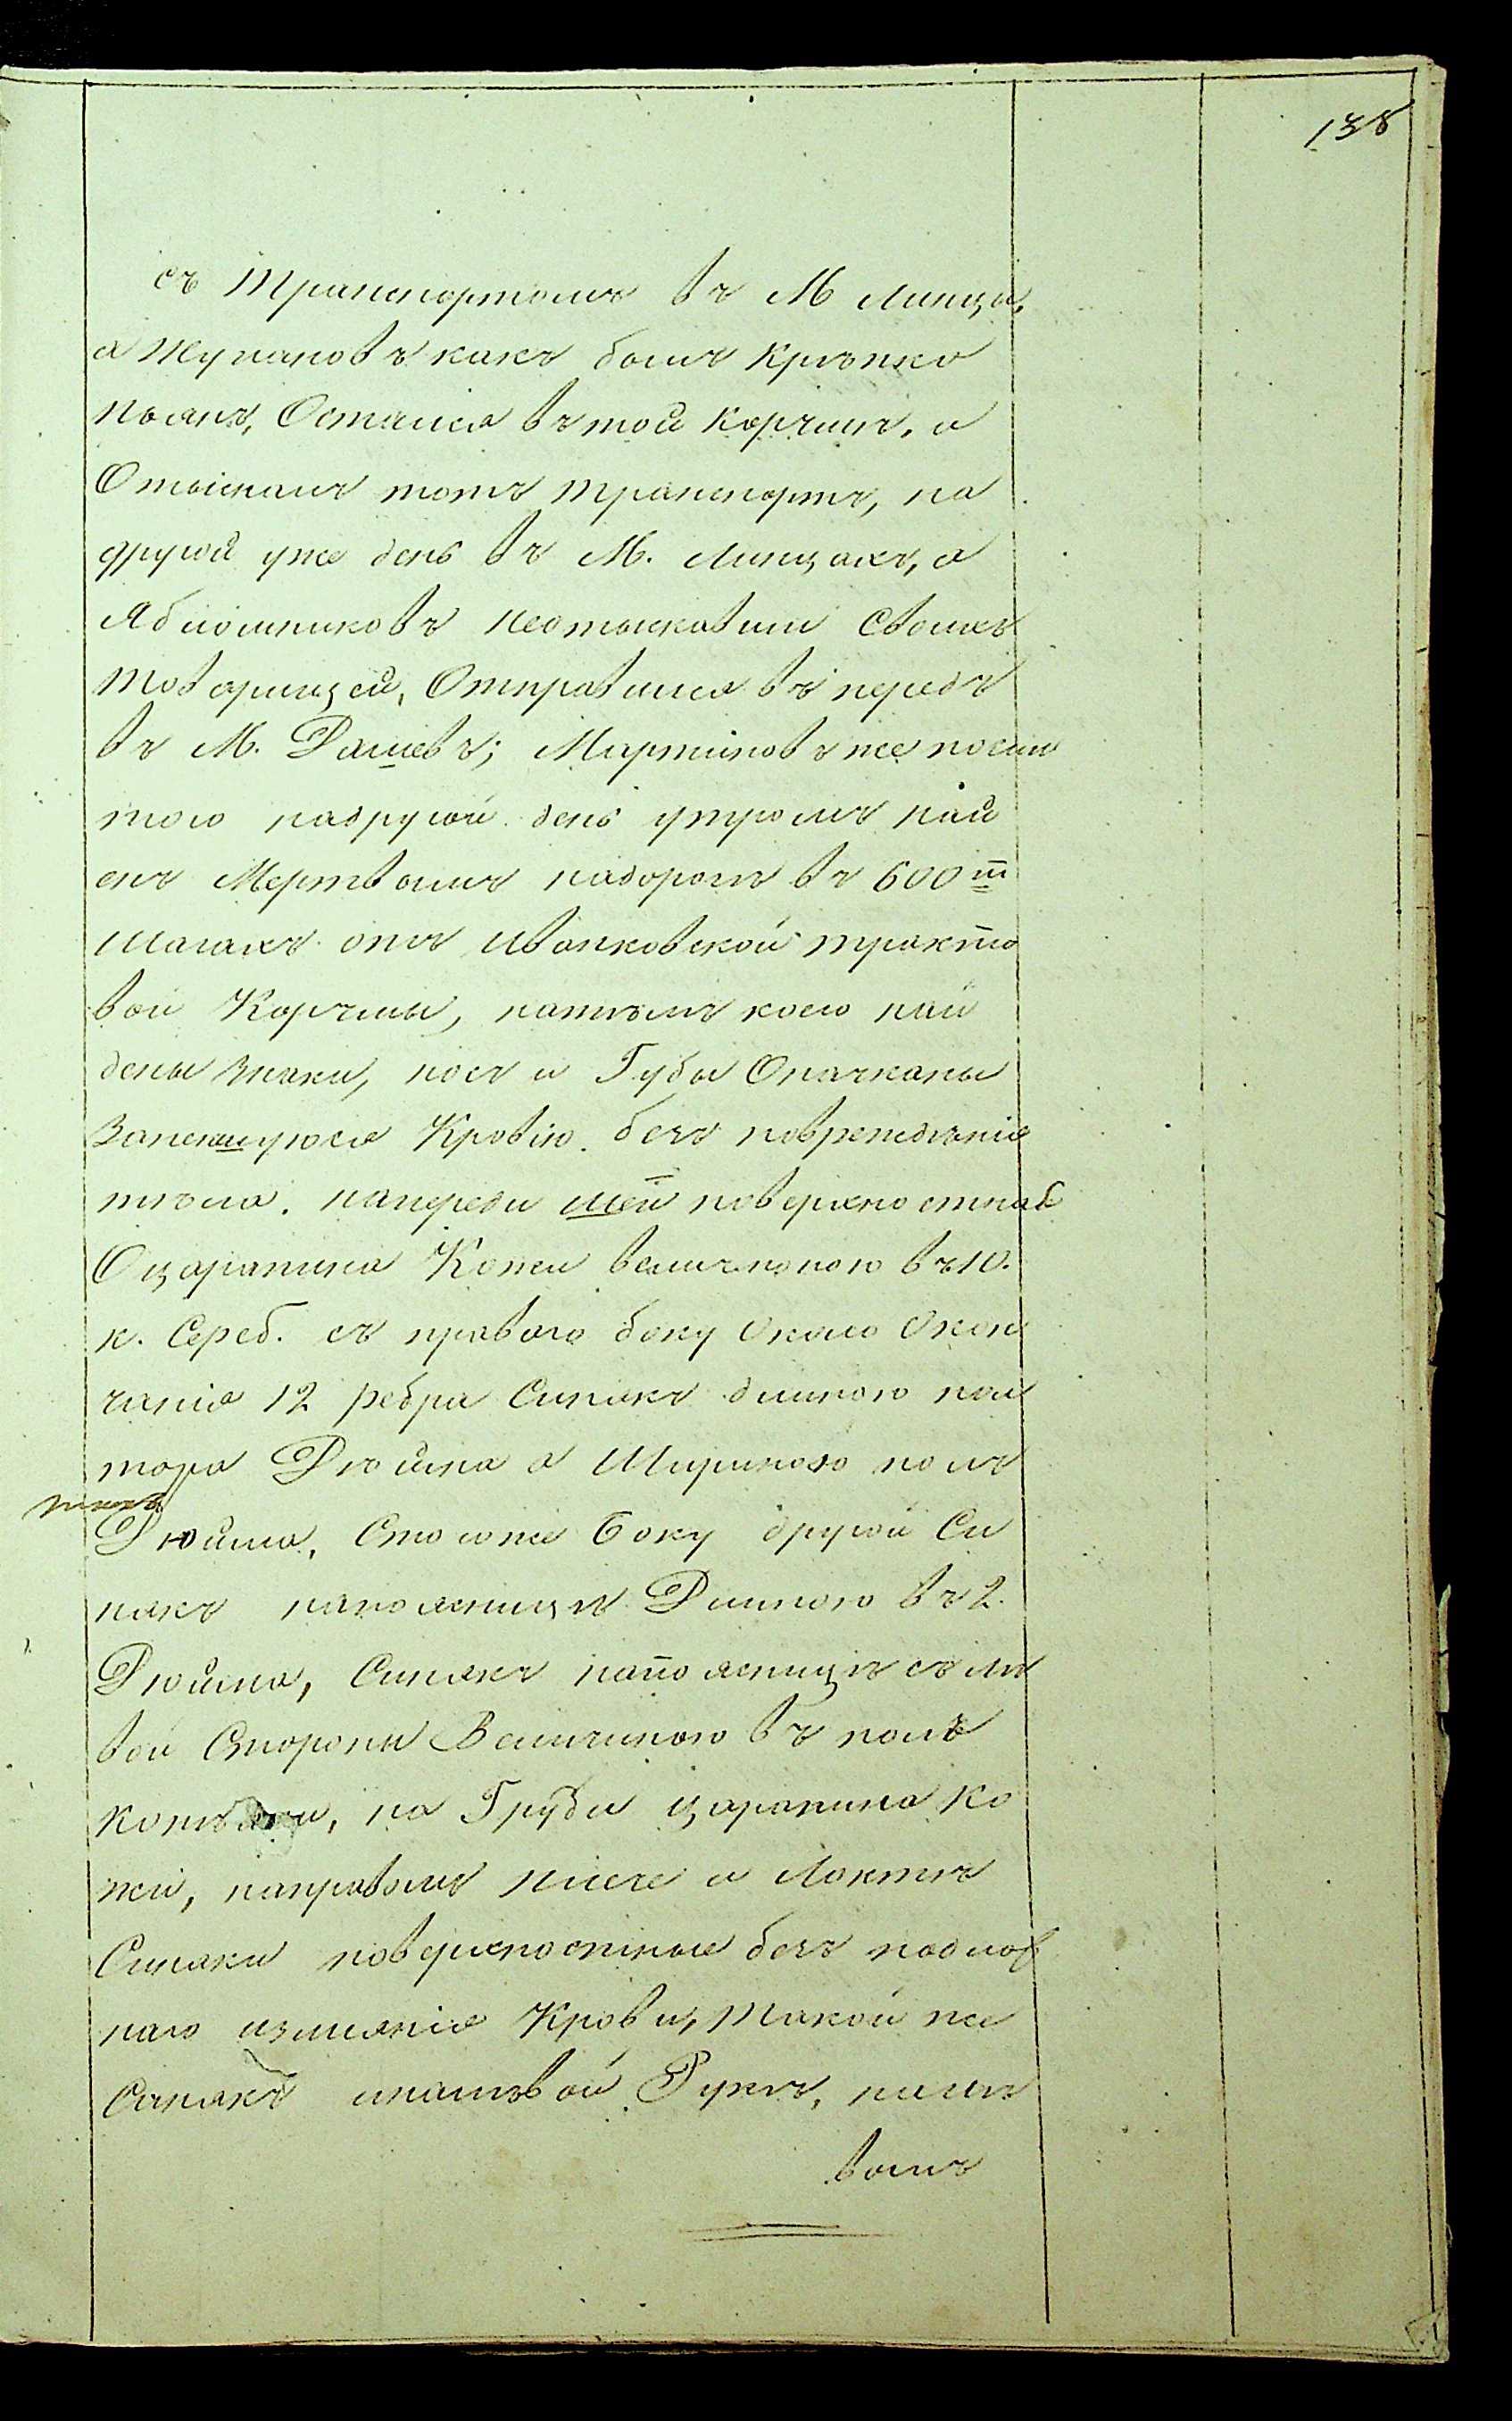 138
съ транспортомъ въ М Линцы,
а Жупановъ какъ былъ крѣпко
пьянъ, Остался въ той Корчмѣ, и
Отыскалъ тотъ транспортъ, на
другой уже день въ М. Линцахъ, а
Яблошниковъ неотыскавши Своихъ
товарищей, Отправился въ передъ
въ М. Дашевъ; Мартыновъ же послѣ
того надругой день утромъ най
енъ Мертвымъ надорогѣ въ 600 т̅
шагахъ отъ Иванковской тракто
вой Корчмы, натѣлѣ коего най
дены Знаки, носъ и Губы Опачканы
Запекшуюся Кровію. безъ поврежденія
тѣла. напереди шеи поверхностная
Оцарапина Кожи величиною въ 10.
к. Сереб. съ праваго боку Около Окон
чанія 12 ребра Синякъ длиною пол
тора Дюйма а Шириною полъ
Дюйма, Стогоже Боку другой Си
някъ напоясницѣ Длиною въ 2.
Дюйма, Синякъ напоясницѣ съ лѣ
вой Стороны Величиною въ полъ
на Груди царапина ко
жи, направомъ плечѣ и Локтѣ
Синяки поверхностные безъ подков
наго изліянія Крови, Такой же
Синякъ налѣвой Рукѣ, налѣ
вомъ